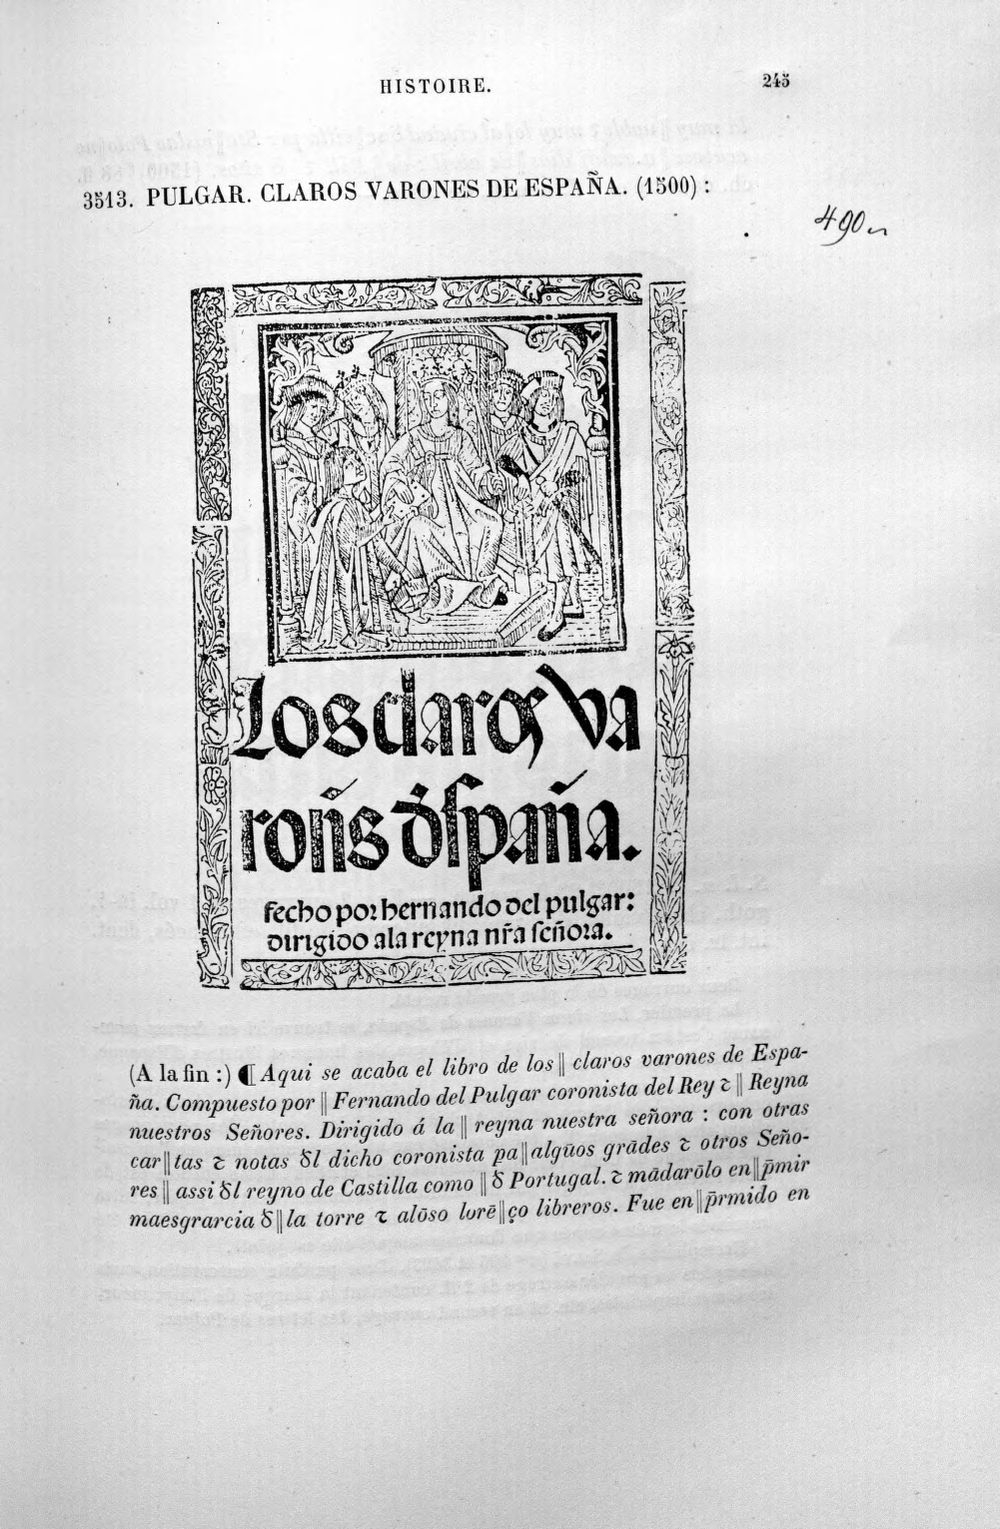 HISTOIRE.
245
3513. PULGAR. CLAROS VARONES DE ESPAÑA. (1500) :
490
Los claros va
roñs đspaña.
fecho por hernando del pulgar:
dirigido a la reyna nr̃a señora.
(A la fin :) ¶ Aqui se acaba el libro de los || claros varones de Espa-
ña. Compuesto por || Fernando del Pulgar coronista del Rey τ || Reyna
nuestros Señores. Dirigido á la || reyna nuestra señora : con otras
car || tas τ notas đl dicho coronista pa || algūos grādes τ otros Seño-
res || assi đl reyno de Castilla como || đ Portugal. τ mādarōlo en || p̄mir
maesgrarcia đ || la torre τ alōso lorē || ço libreros. Fue en || p̄rmido en